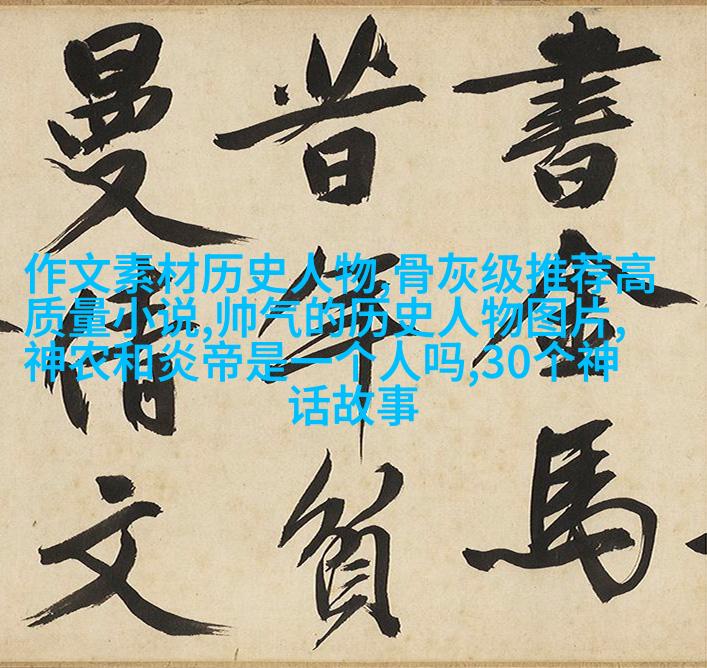 書金馬
昔年負
曼倩文
作文素材历史人物,骨灰级推荐高
质量小说,帅气的历史人物图片,
神农和炎帝是一个人吗,30个神
话故事